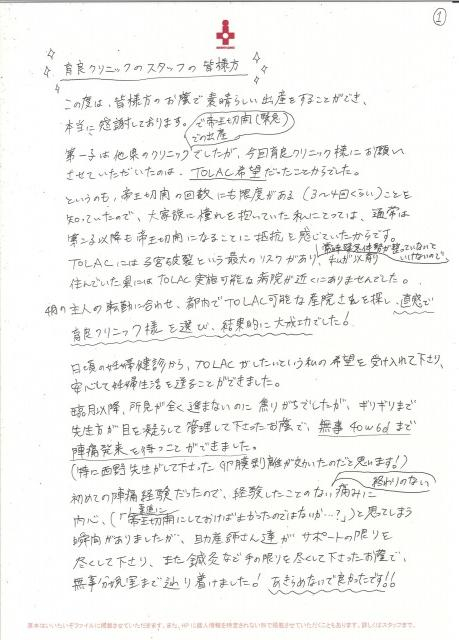 ①
育良クリニックのスタッフの皆様方
この度は、皆様方のお蔭で素晴らしい出産をすることができ、
本当に感謝しております。
で帝王切開(緊急)
での出産
第一子は他県のクリニックでしたが、今回育良クリニック様にお願い
させていただいたのは、TOLAC希望だったことからでした。
というのも、帝王切開の回数にも限度がある(3〜4回くらい)ことを
知っていたので、大家族に憧れを抱いていた私にとっては、通常は
第二子以降も帝王切開になることに抵抗を感じていたからです。
TOLACには子宮破裂という最大のリスクがあり、
常時緊急体勢が整っていないと
いけないので、
私が以前
住んでいた県にはTOLAC実施可能な病院が近くにありませんでした。
4月の主人の転勤に合わせ、都内でTOLAC可能な産院さんを探し、直感で
育良クリニック様を選び、結果的に大成功でした!
日頃の妊婦健診から、TOLACがしたいという私の希望を受け入れて下さり、
安心して妊婦生活を送ることができました。
臨月以降、所見が全く進まないのに焦りがちでしたが、ギリギリまで
先生方が目を凝らして管理して下さったお蔭で、無事40w6dまで
陣痛発来を待つことができました。
(特に西野先生がして下さった卵膜剥離が効いたのだと思います!)
初めての陣痛経験だったので、経験したことのない
終わりのない
痛みに
内心、(「
素直に
帝王切開にしておけばよかったのではないか…?」)と思ってしまう
瞬間がありましたが、助産師さん達がサポートの限りを
尽くして下さり、また鍼灸など手の限りを尽くして下さったお蔭で、
無事分娩室まで辿り着けました!あきらめないで良かったです!!
原本はいいたいぞファイルに掲載させていただきます。また、HPに個人情報を特定されない形で掲載させていただくこともあります。詳しくはスタッフまで。